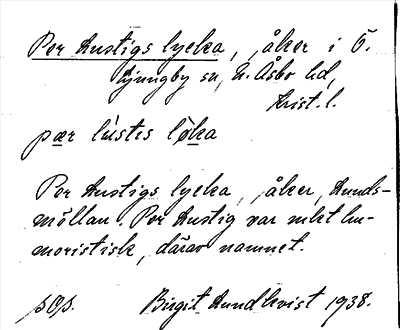 Per Lustigs lycka, åker i Ö.
Ljungby sn, N. Åsbo hd,
Krist. l.
pær lústis løka
Per Lustigs lycka, åker, Lunds-
möllan. Per Lustig var mkt hu-
moristisk, därav namnet.
Birgit Lundkvist 1938.